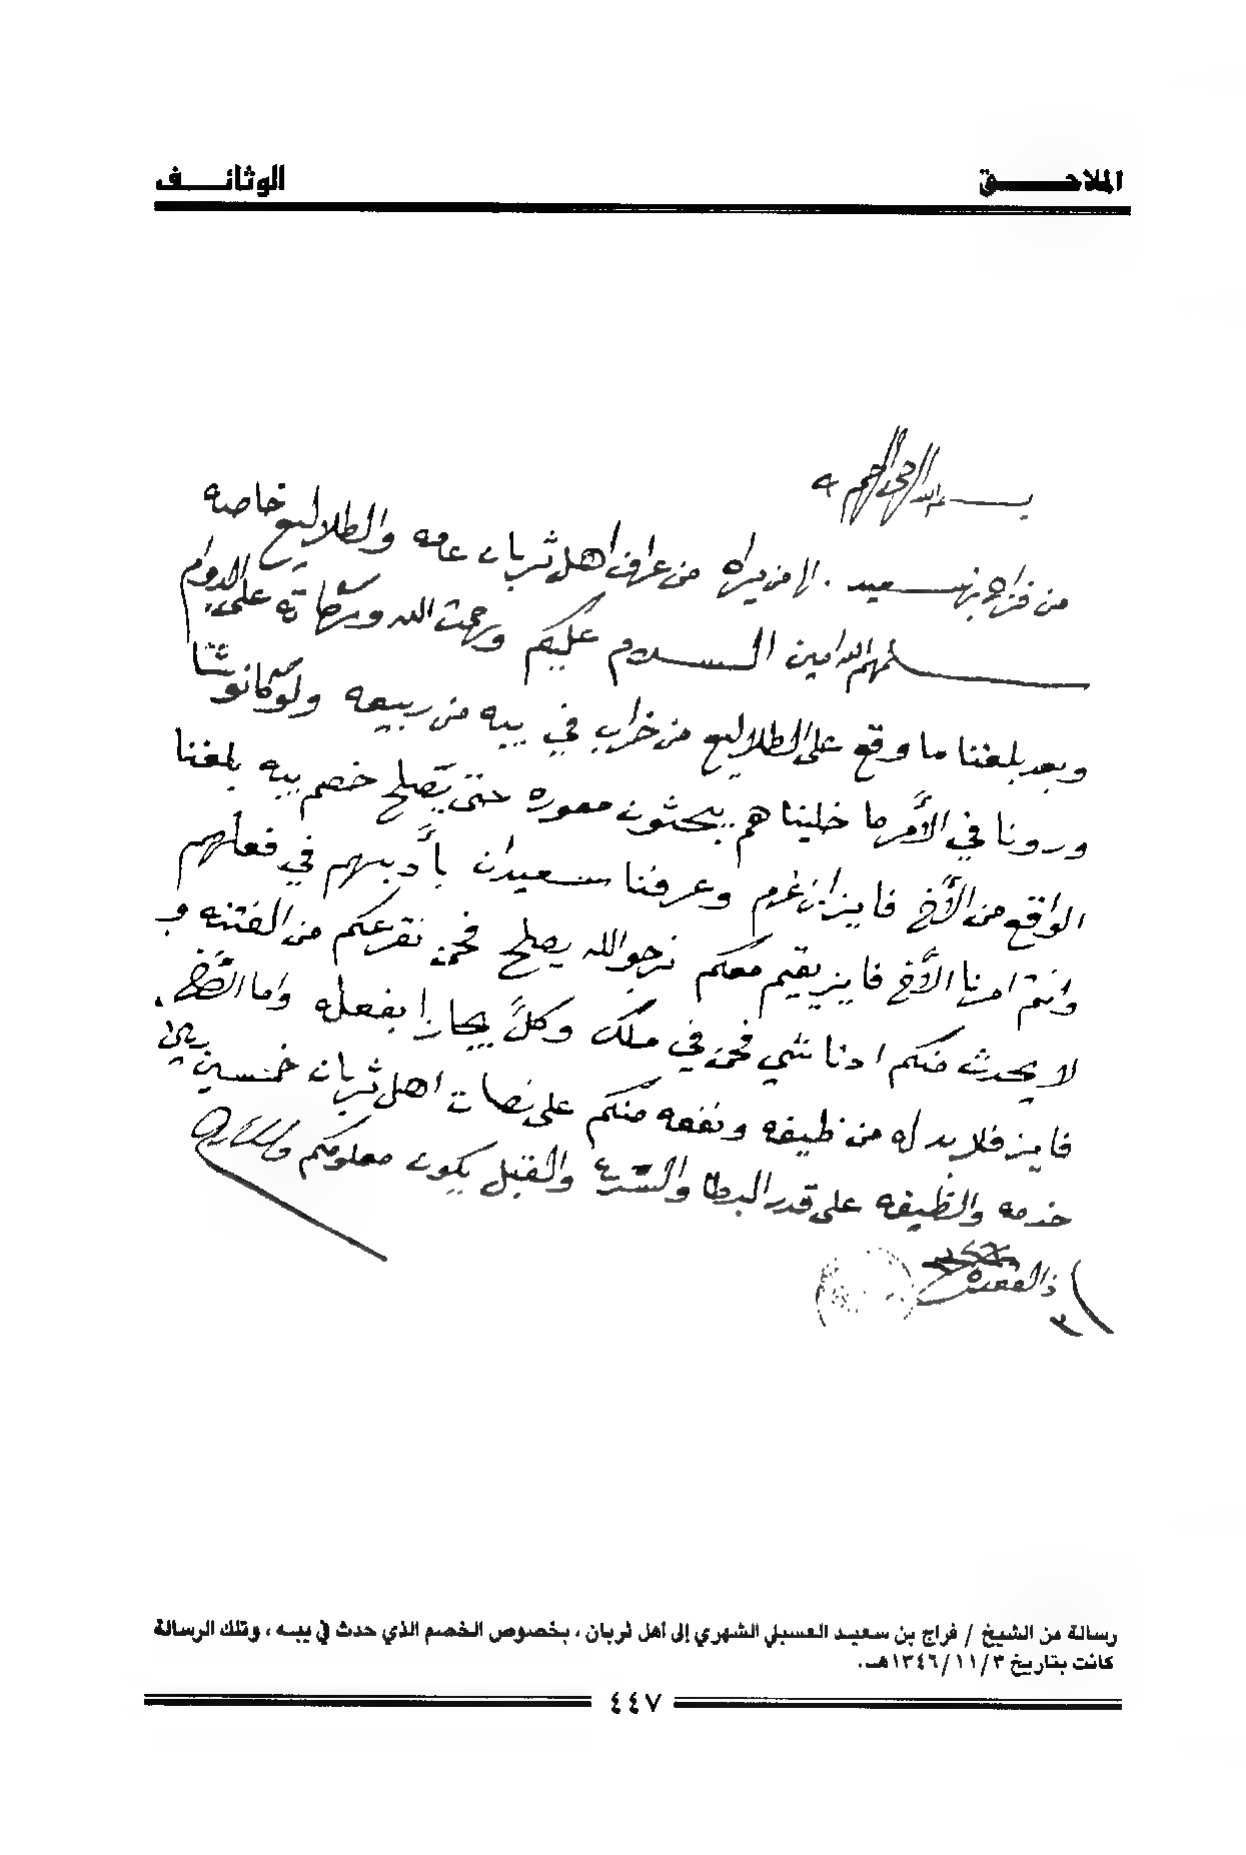 الملاحق
الوثائف
بسم الله الرحمن الرحيم
من فراج بن سعيد . الا من يراه من عراف اهل ثربان عامه والطلاليع خاصه
سلمهم الله امين السلام عليكم ورحمت الله وبركاته على الدوام
وبعد بلغنا ما وقع على الطلاليع من خراب في ببه من ربيعه ولو كانو
ورونا في الأمر ما خليناهم يبحثون معوره حتى يصلح خصم ببه بلغنا
الواقع من الأخ فايز ابن غرم وعرفنا سعيدان بأدبهم في فعلهم
وانتم امرنا الأخ فايز يقيم معكم نرجو الله يصلح فحن نقرعكم من الفتنه و
لا يحدث منكم ادنا شي فحن في ملك وكلً يجازا بفعله واما الأخ
فايز فلا بد له من ظيفه ونفعه منكم على نصات اهل ثربان خمسين ريال
خدمه والظيفه على قدر البطا والسرع والقبل يكون معلومكم والسلام
٣ ذالقعده
رسالة من الشيخ / فراج بن سعيد العسبلي الشهري إلى أهل ثربان ، بخصوص الخصم الذي حدث في ببه ، وتلك الرسالة
كانت بتاريخ ١٣٤٦/١١/٣هـ.
٤٤٧